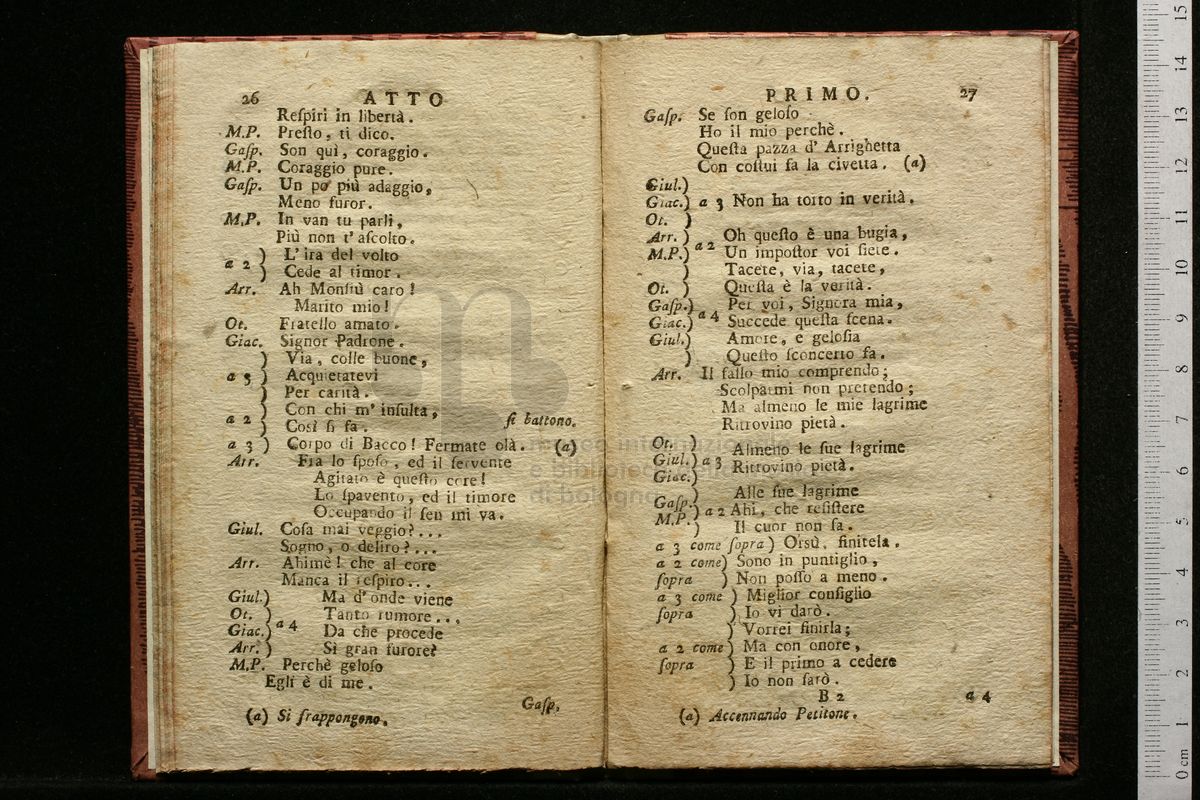 26 ATTO
Reſpiri in libertà.
M.P. Preſto, ti dico.
Gaſp. Son quì, coraggio.
M.P. Coraggio pure.
Gaſp. Un po' più adaggio,
Meno furor.
M.P. In van tu parli,
Più non t'aſcolto.
a 2 ) L'ira del volto
) Cede al timor.
Arr. Ah Monſiù caro!
Marito mio!
Ot. Fratello amato.
Giac. Signor Padrone.
) Via, colle buone,
a 3 ) Acquietatevi
) Per carità.
a 2 ) Con chi m'inſulta,
) Così ſi fa. ſi battono.
a 3 ) Corpo di Bacco! Fermate olà. (a)
Arr. Fra lo ſpoſo, ed il ſervente
Agitato è queſto core!
Lo ſpavento, ed il timore
Occupando il ſen mi va.
Giul. Coſa mai veggio?...
Sogno, o deliro?...
Arr. Ahimè! che al core
Manca il reſpiro...
Giul.) Ma d'onde viene
Ot. ) Tanto rumore...
Giac.) a 4 Da che procede
Arr. ) Sì gran furore?
M.P. Perchè geloſo
Egli è di me.
Gaſp.
(a) Si frappongono.
PRIMO. 27
Gaſp. Se ſon geloſo
Ho il mio perchè.
Queſta pazza d'Arrighetta
Con coſtui fa la civetta. (a)
Giul.)
Giac.) a 3 Non ha torto in verità.
Ot. )
Arr. ) Oh queſto è una bugia,
M.P.) a 2 Un impoſtor voi ſiete.
) Tacete, via, tacete,
Ot. ) Queſta è la verità.
Gaſp.) Per voi, Signora mia,
Giac.) a 4 Succede queſta ſcena.
Giul.) Amore, e geloſia
) Queſto ſconcerto fa.
Arr. Il fallo mio comprendo;
Scolparmi non pretendo;
Ma almeno le mie lagrime
Ritrovino pietà.
Ot. ) Almeno le ſue lagrime
Giul.) a 3 Ritrovino pietà.
Giac.)
) Alle ſue lagrime
Gaſp.) a 2 Ahi, che reſiſtere
M.P.) Il cuor non ſa.
a 3 come ſopra) Orsù, finitela.
a 2 come) Sono in puntiglio,
ſopra ) Non poſſo a meno.
a 3 come ) Miglior conſiglio
ſopra ) Io vi darò.
) Vorrei finirla;
a 2 come ) Ma con onore,
ſopra ) E il primo a cedere
) Io non ſarò.
B 2 a 4
(a) Accennando Petitone.
0 cm 1 2 3 4 5 6 7 8 9 10 11 12 13 14 15